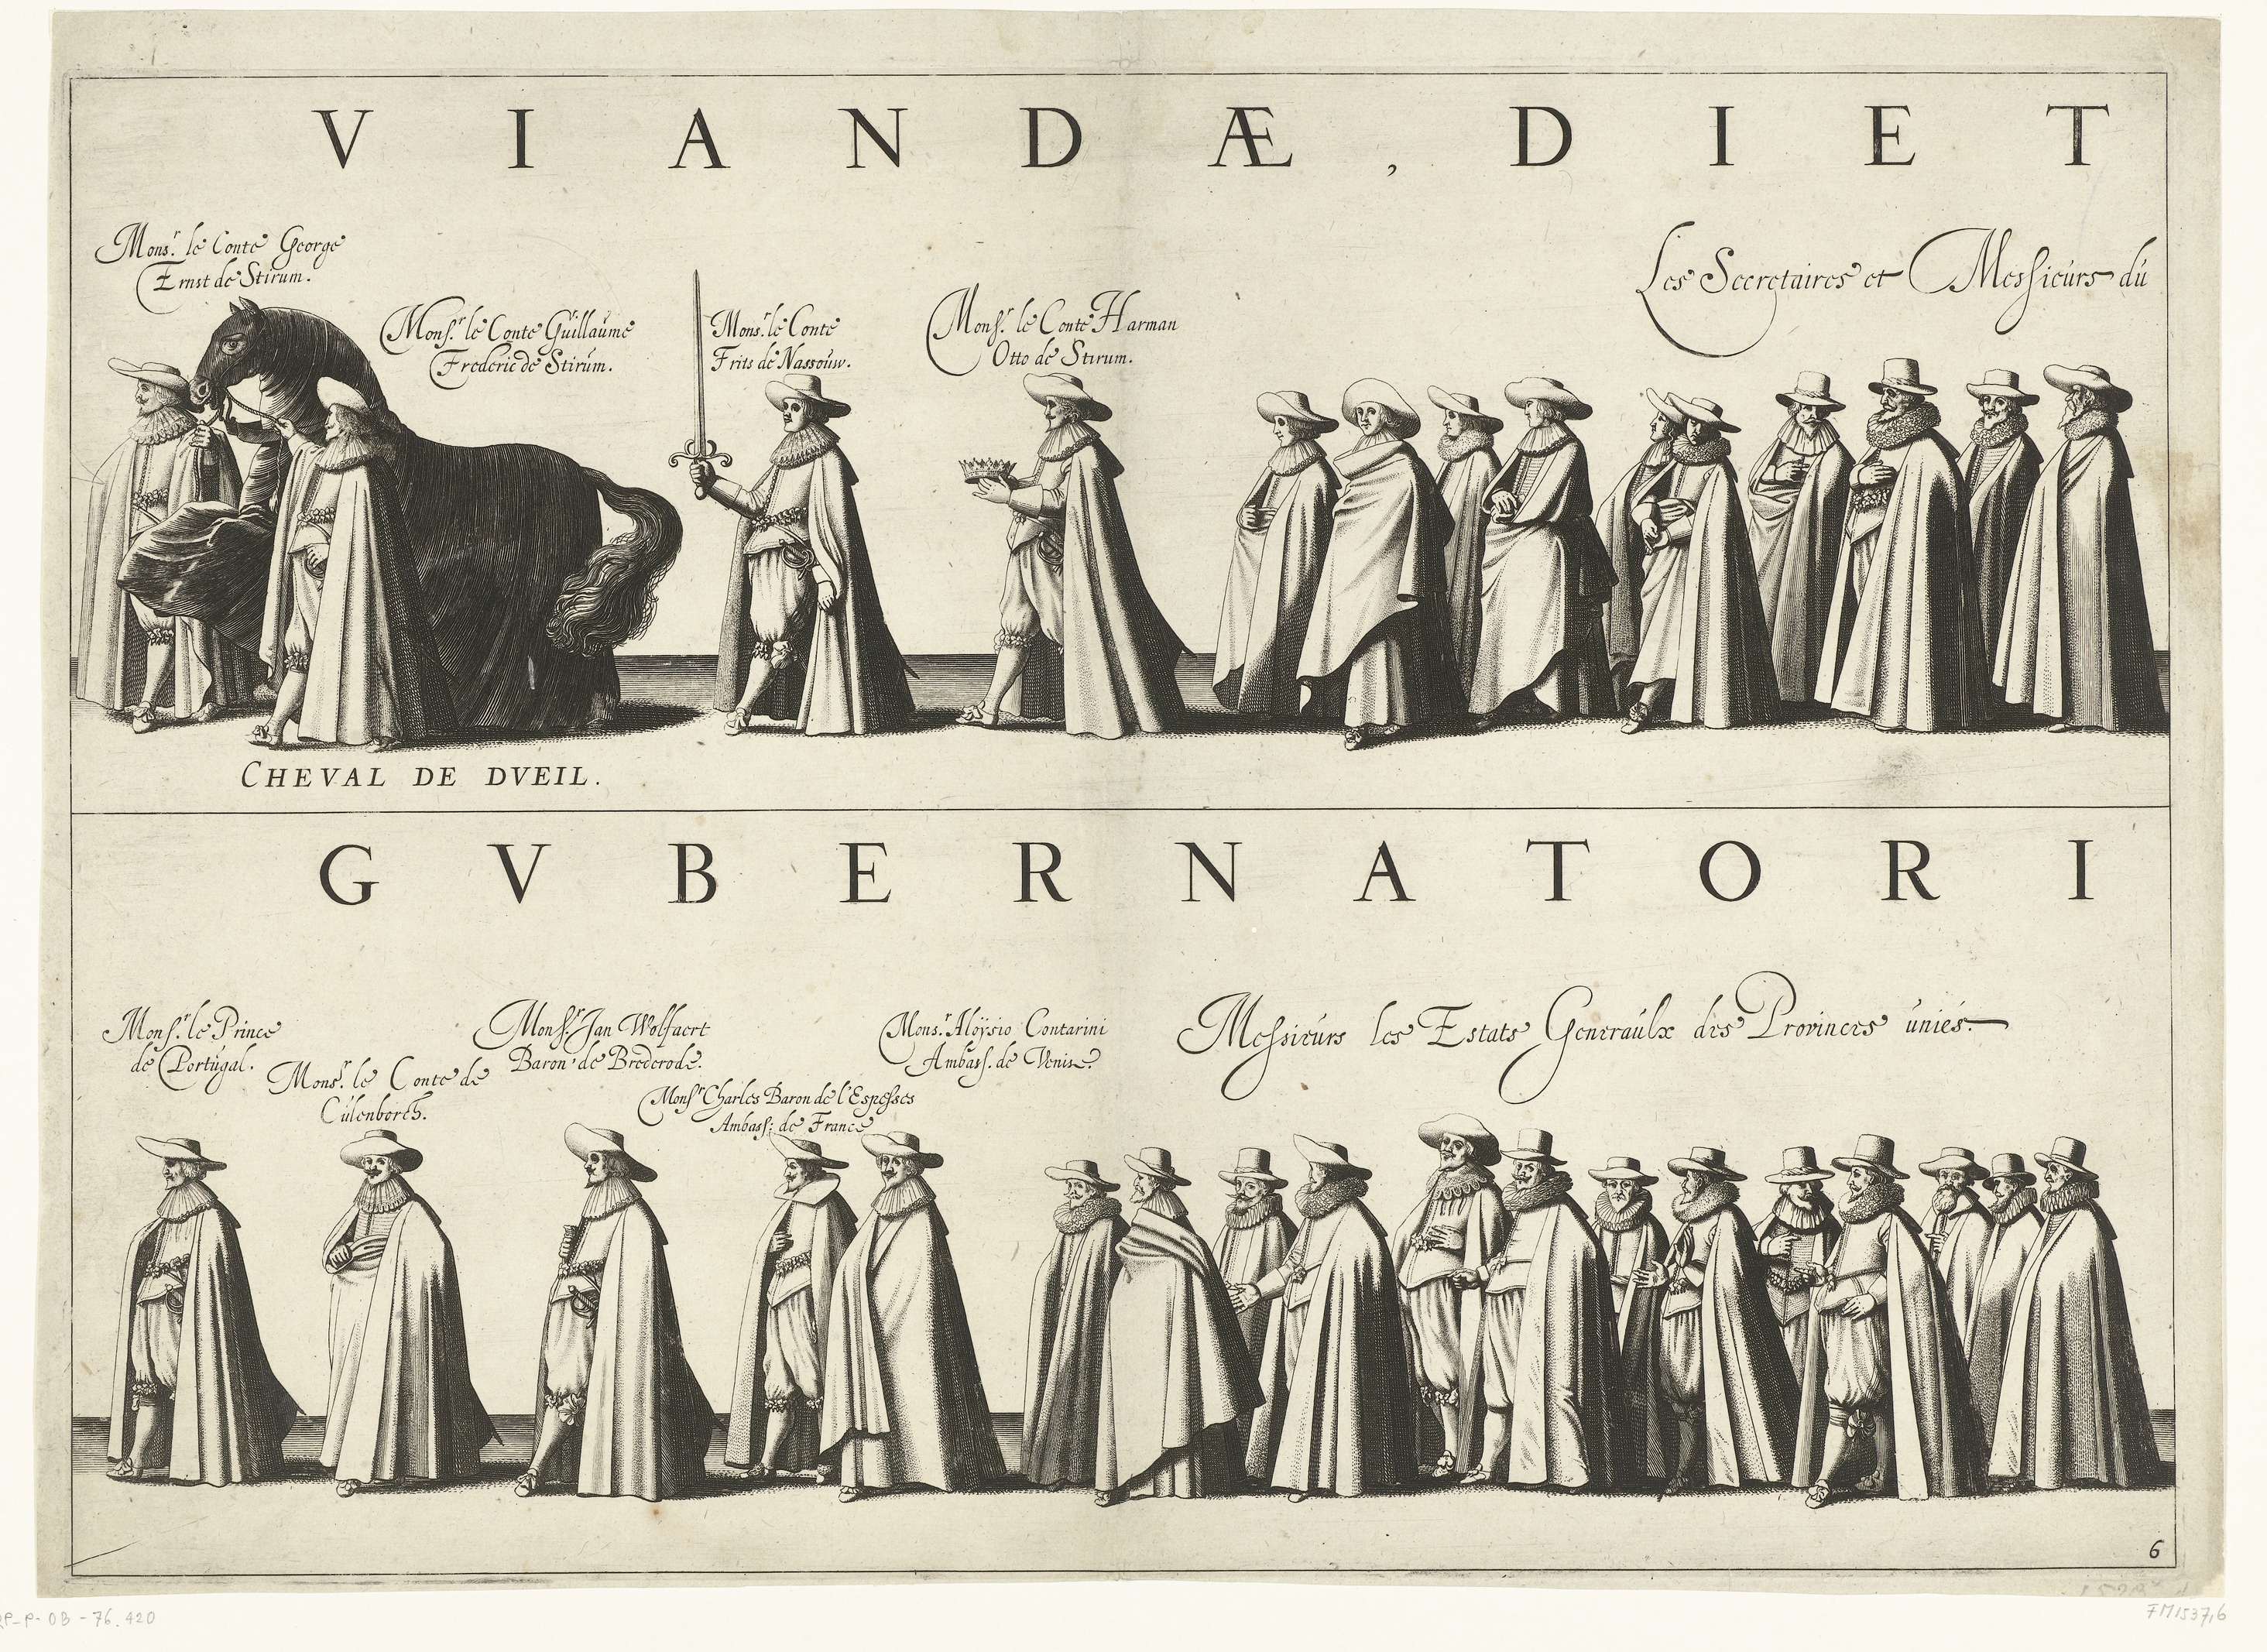 VIANDÆ, DIET
Mons.r le Conte George
Ernst de Stirum.
Mons.r le Conte Guillaume
Frederic de Stirum.
Mons.r le Conte
Frits de Nassouw.
Mons.r le Conte Harman
Otto de Stirum.
Les Secretaires et Messieurs du
CHEVAL DE DVEIL.
GVBERNATORI
Mons.r le Prince
de Portugal.
Mons.r le Conte de
Culenborch.
Mons.r Jan Wolfaert
Baron de Brederode.
Mons.r Charles Baron de l'Espesses
Ambass: de France
Mons.r Aloÿsio Contarini
Ambass. de Venise
Messieurs les Estats Generaulx des Provinces unies.
6
RP-P-OB-76.420
FM1537,6